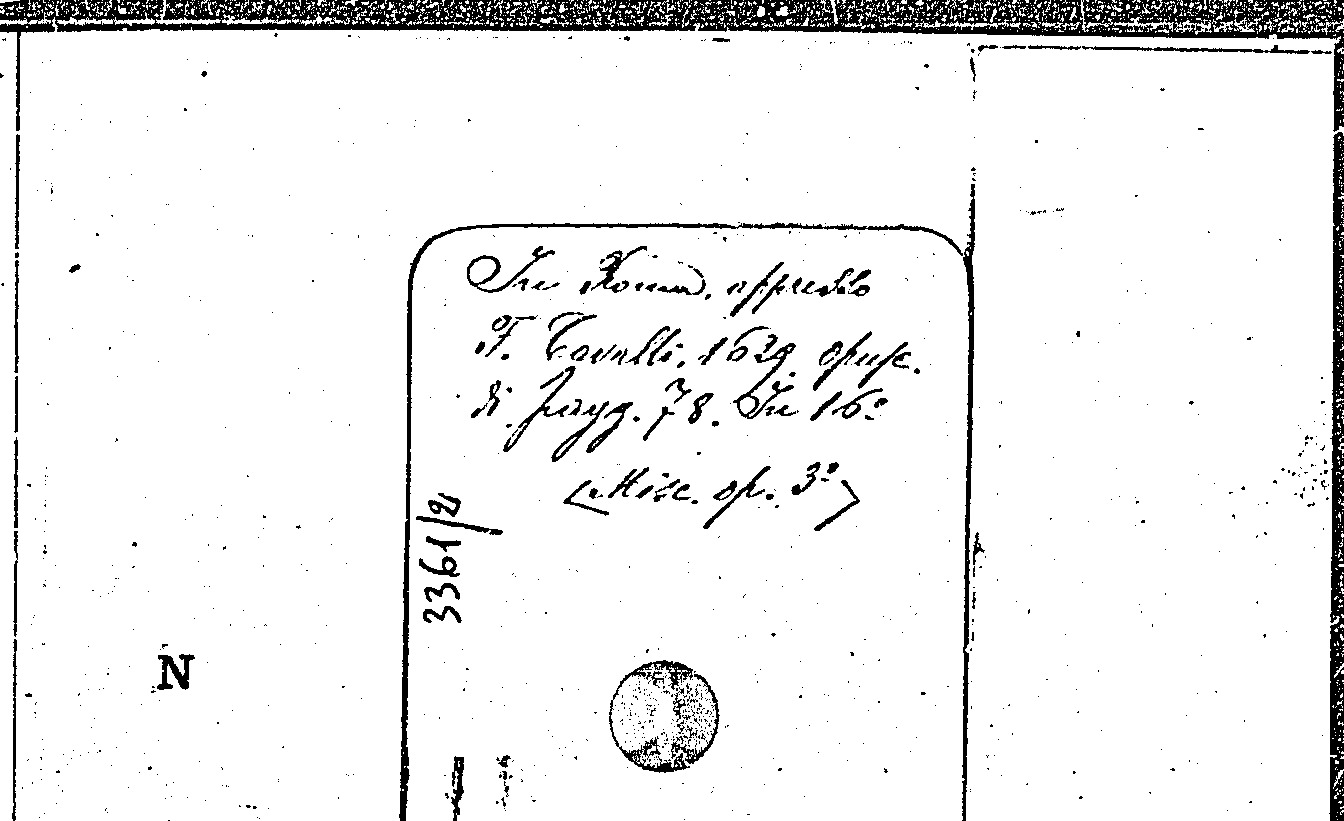 In Roma, appresso
F. Cavalli. 1639. opusc.
di pagg. 78. In 16º
(Misc. op. 3º)
3361/2
N